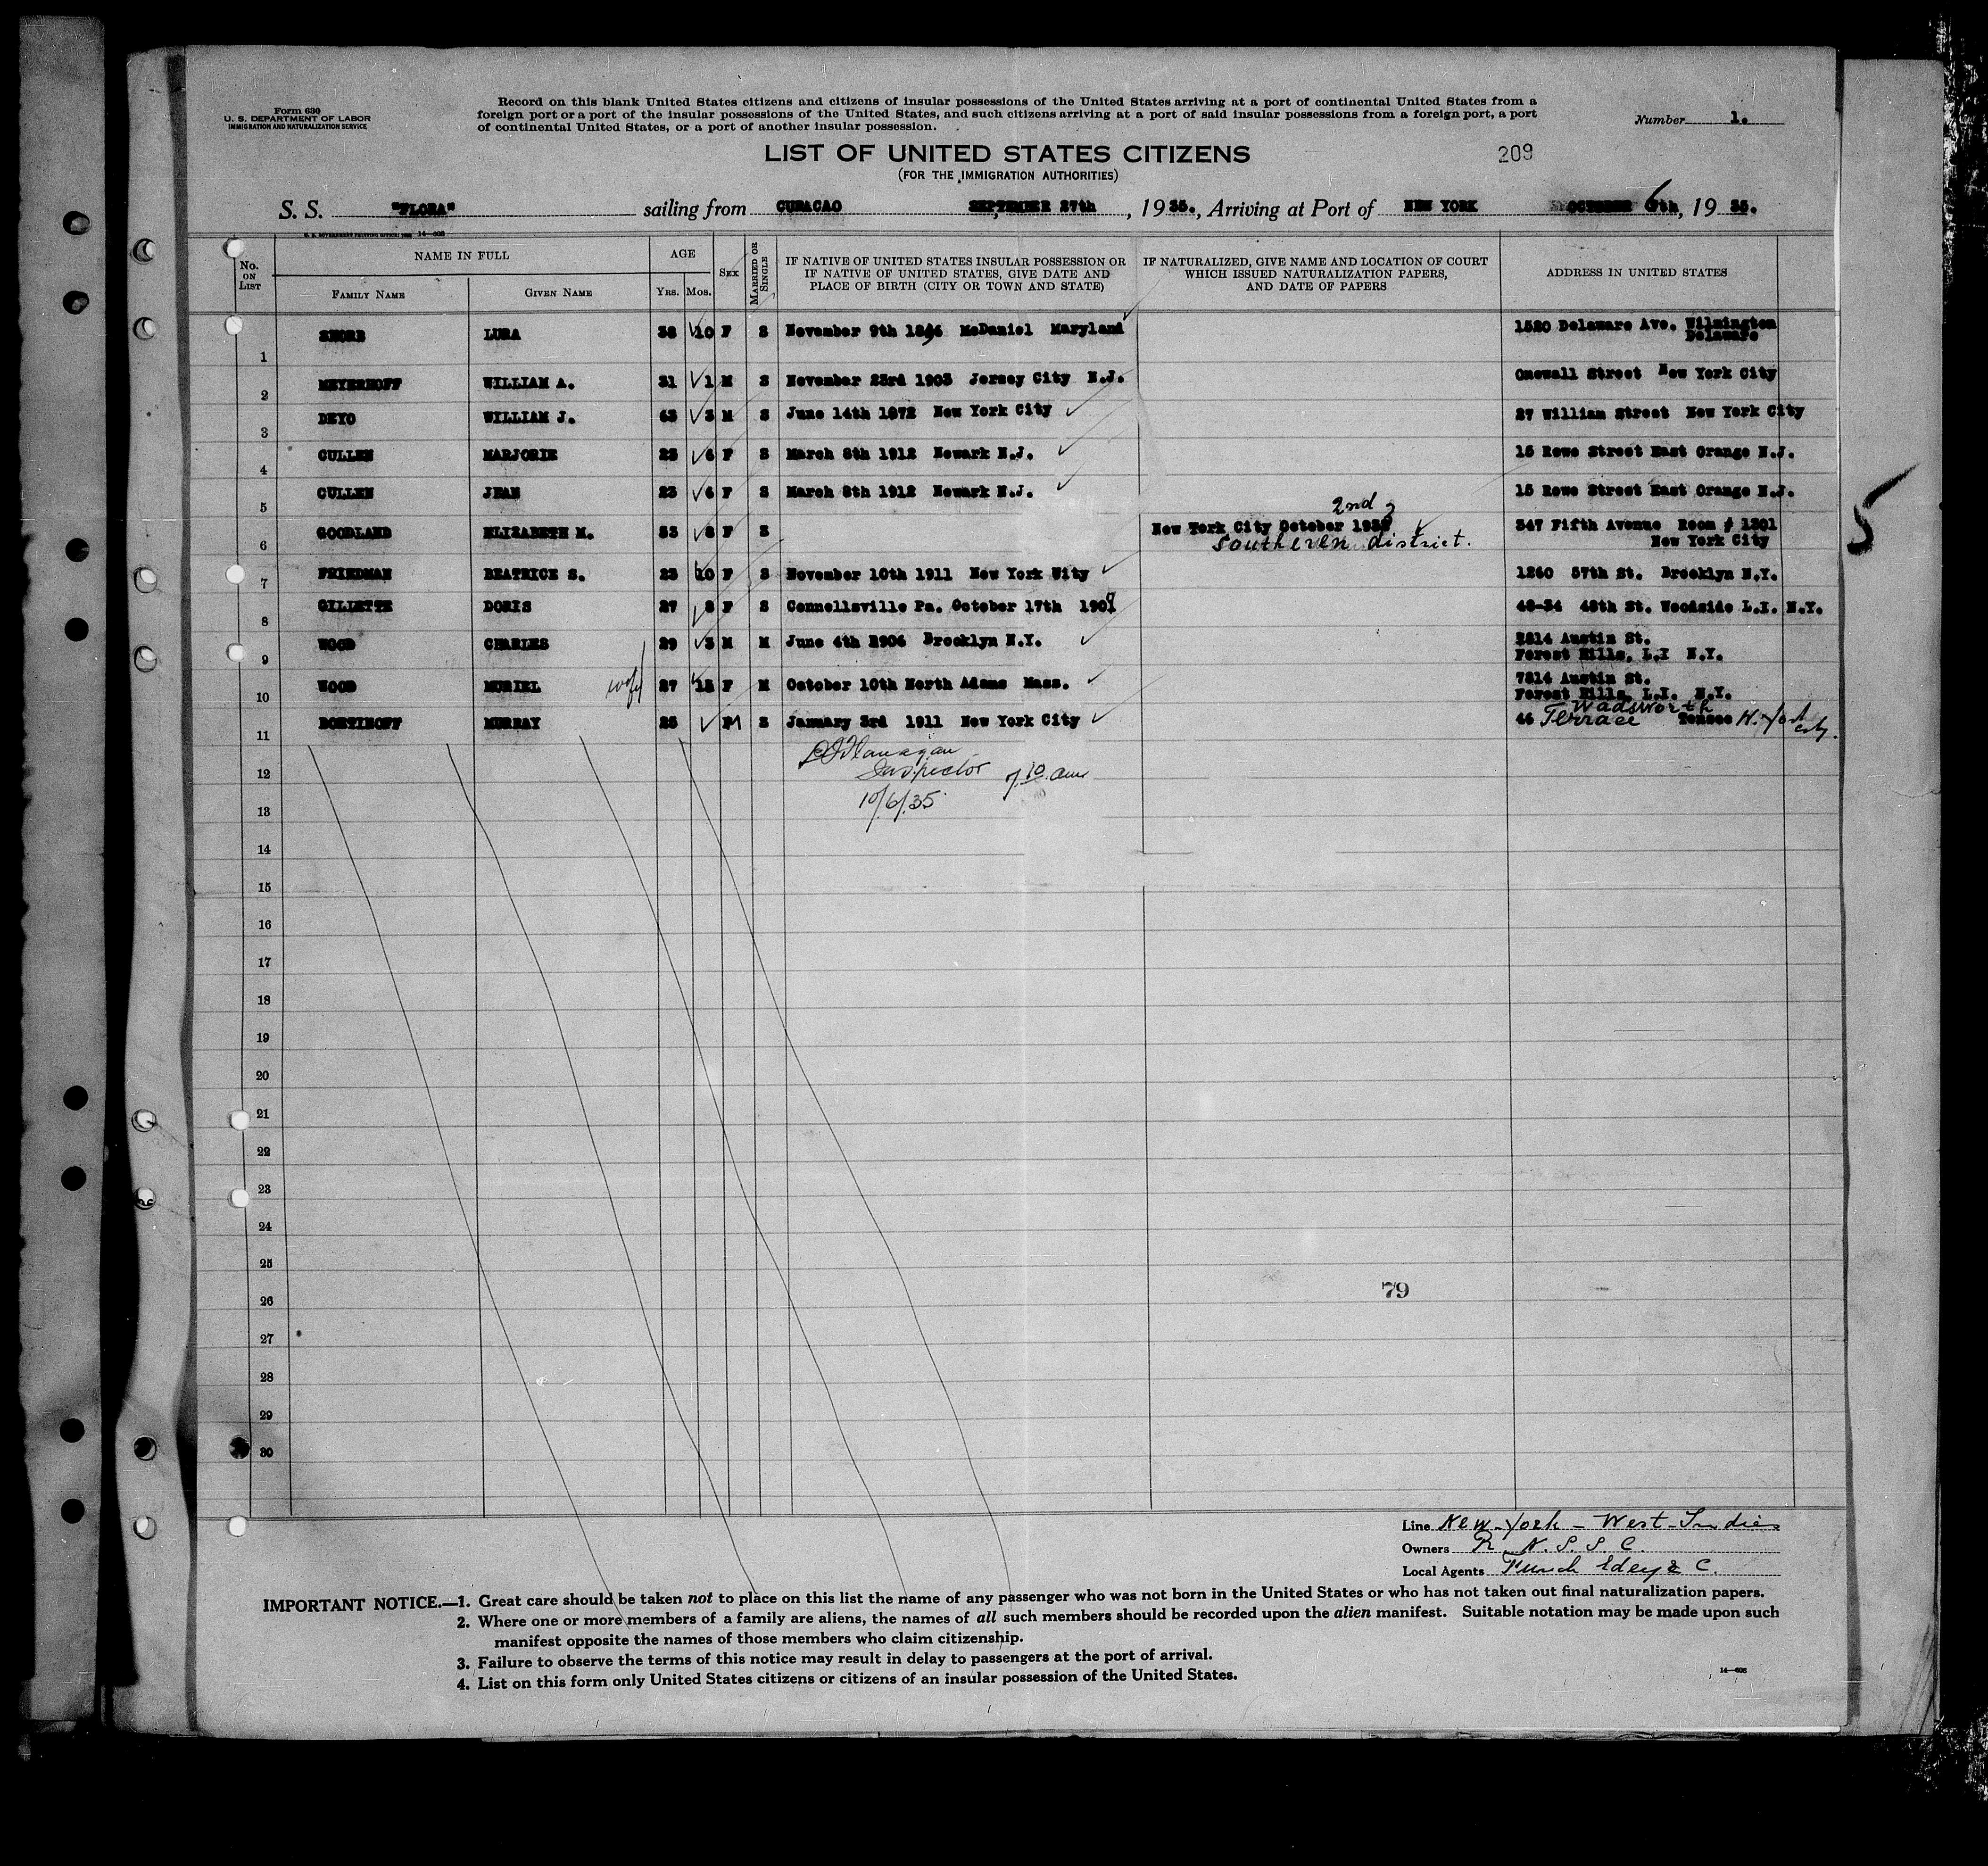 Form 630
U. S. DEPARTMENT OF LABOR
IMMIGRATION AND NATURALIZATION SERVICE
Record on this blank United States citizens and citizens of insular possessions of the United States arriving at a port of continental United States from a
foreign port or a port of the insular possessions of the United States, and such citizens arriving at a port of said insular possessions from a foreign port, a port
of continental United States, or a port of another insular possession.
Number 1.
LIST OF UNITED STATES CITIZENS
209
(FOR THE IMMIGRATION AUTHORITIES)
S. S. "FLORA" sailing from CURACAO SEPTEMBER 27th, 1935., Arriving at Port of NEW YORK OCTOBER 6th, 1935.
No. ON LIST
NAME IN FULL
FAMILY NAME
GIVEN NAME
AGE
YRS. MOS.
SEX
MARRIED OR SINGLE
IF NATIVE OF UNITED STATES INSULAR POSSESSION OR
IF NATIVE OF UNITED STATES, GIVE DATE AND
PLACE OF BIRTH (CITY OR TOWN AND STATE)
IF NATURALIZED, GIVE NAME AND LOCATION OF COURT
WHICH ISSUED NATURALIZATION PAPERS,
AND DATE OF PAPERS
ADDRESS IN UNITED STATES
1 SHORE LURA 38 10 F S November 9th McDaniel Maryland 1520 Delaware Ave. Wilmington
Delaware
2 MEYERHOFF WILLIAM A. 31 1 M S November 23rd 1903 Jersey City N.J. Onewall Street New York City
3 DEYO WILLIAM J. 63 3 M S June 14th 1872 New York City 27 William Street New York City
4 CULLEN MARJORIE 23 6 F S March 8th 1912 Newark N.J. 15 Rowe Street East Orange N.J.
5 CULLEN JEAN 23 6 F S March 8th 1912 Newark N.J. 15 Rowe Street East Orange N.J.
2nd
6 GOODLAND ELIZABETH M. 53 8 F S New York City October 347 Fifth Avenue Room # 1301
Southeren district. New York City
7 FRIEDMAN BEATRICE S. 23 10 F S November 10th 1911 New York City 1260 57th St. Brooklyn N.Y.
8 GILLETTE DORIS 27 8 F S Connellsville Pa. October 17th 48-34 48th St. Woodside L.I. N.Y.
9 WOOD CHARLES 29 3 M M June 4th 1906 Brooklyn N.Y. Austin St.
Forest Hills, L.I N.Y.
10 WOOD MURIEL wife 27 F M October 10th North Adams Mass. 7814 Austin St.
Forest Hills, L.I. N.Y.
Wadsworth
11 MURRAY 25 M S January 3rd 1911 New York City 46 Terrace N. York City.
Flanagan
Inspector 7.10 am
10/6/35
12
13
14
15
16
17
18
19
20
21
22
23
24
25
26
27
28
29
30
5
79
Line New-York - West-Indies
Owners R. N. S. S. C.
Local Agents Funch Edey & C.
IMPORTANT NOTICE.—1. Great care should be taken not to place on this list the name of any passenger who was not born in the United States or who has not taken out final naturalization papers.
2. Where one or more members of a family are aliens, the names of all such members should be recorded upon the alien manifest. Suitable notation may be made upon such
manifest opposite the names of those members who claim citizenship.
3. Failure to observe the terms of this notice may result in delay to passengers at the port of arrival.
4. List on this form only United States citizens or citizens of an insular possession of the United States.